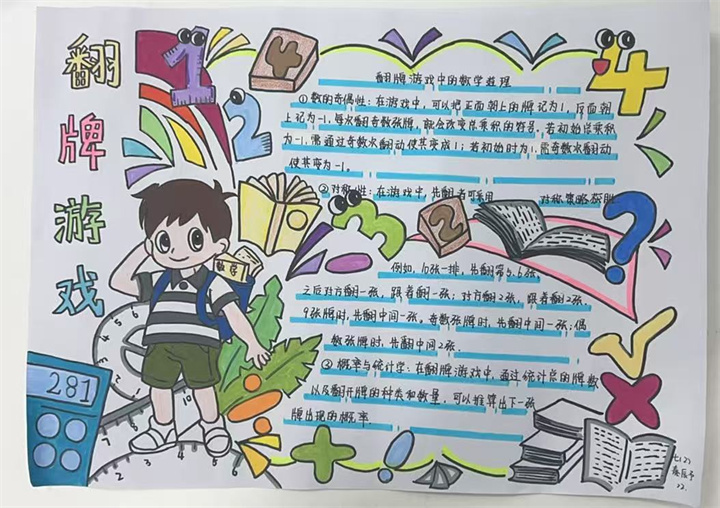 翻牌游戏
翻牌游戏中的数学道理
①数的奇偶性：在游戏中，可以把正面朝上的牌记为1，反面朝
上记为-1，每次翻奇数张牌，就会改变总乘积的符号，若初始总乘积
为-1，需通过奇数次翻动使其变成1；若初始时为1，需奇数次翻动
使其变为-1。
②对称性：在游戏中，先翻者可采用 对称策略获胜
例如，10张一排，先翻第5、6张，
之后对方翻一张，跟着翻一张；对方翻2张，跟着翻2张，
9张牌时，先翻中间一张。奇数张牌时，先翻中间一张；偶
数张牌时，先翻中间2张.
③ 概率与统计学：在翻牌游戏中，通过统计总的牌数
以及翻开牌的种类和数量，可以推算出下一张
牌出现的概率.
1
2
3
4
4
2
?
数学
281
6
5
2
3
4
5
6
7
七(2)
12.